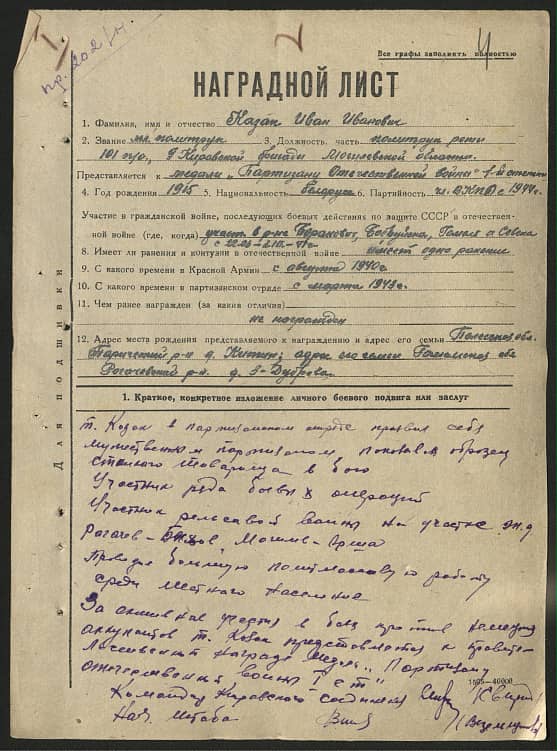 пр. 202/н
Все графы заполнять полностью
4
НАГРАДНОЙ ЛИСТ
1. Фамилия, имя и отчество Казак Иван Иванович
2. Звание мл. политрук 3. Должность, часть политрук роты
101 п/о, Кировской Могилевской области.
Представляется к медали „Партизану Отечественной войны" 1-й степени
4. Год рождения 1915 5. Национальность белорус 6. Партийность чл. ВКП(б) с 1944г.
Участие в гражданской войне, последующих боевых действиях по защите СССР и отечествен-
ной войне (где, когда) участ. в р-не Барановичи, Бобруйска, Гомель и Севска
с 22.06-
8. Имеет ли ранения и контузии в отечественной войне имеет одно ранение
9. С какого времени в Красной Армии с августа 1940г.
10. С какого времени в партизанском отряде с марта 1943г.
11. Чем ранее награжден (за какие отличия)
не награжден
12. Адрес места рождения представляемого к награждению и адрес его семьи Полесская обл.
Паричский р-н д. адрес его семьи Гомельская обл
Рогачевский р-н д. З-Дуброва
Для подшивки
1. Краткое, конкретное изложение личного боевого подвига или заслуг
т. Козак в партизанском отряде проявил себя
мужественным партизаном, показывал образец
стойкого товарища в бою
Участник ряда боевых операций
Участник рельсовой войны на участке ж.д
Рогачов - Могилев - Орша
Проводил большую политмассовую работу
среди местного населения
За активное участие в боях против немецких
аккупантов т. Козак представляется к правите-
лственной награде медаль „Партизану
отечественной войны I ст"
1585-40000
Командир Кировского соединения
Нач. штаба